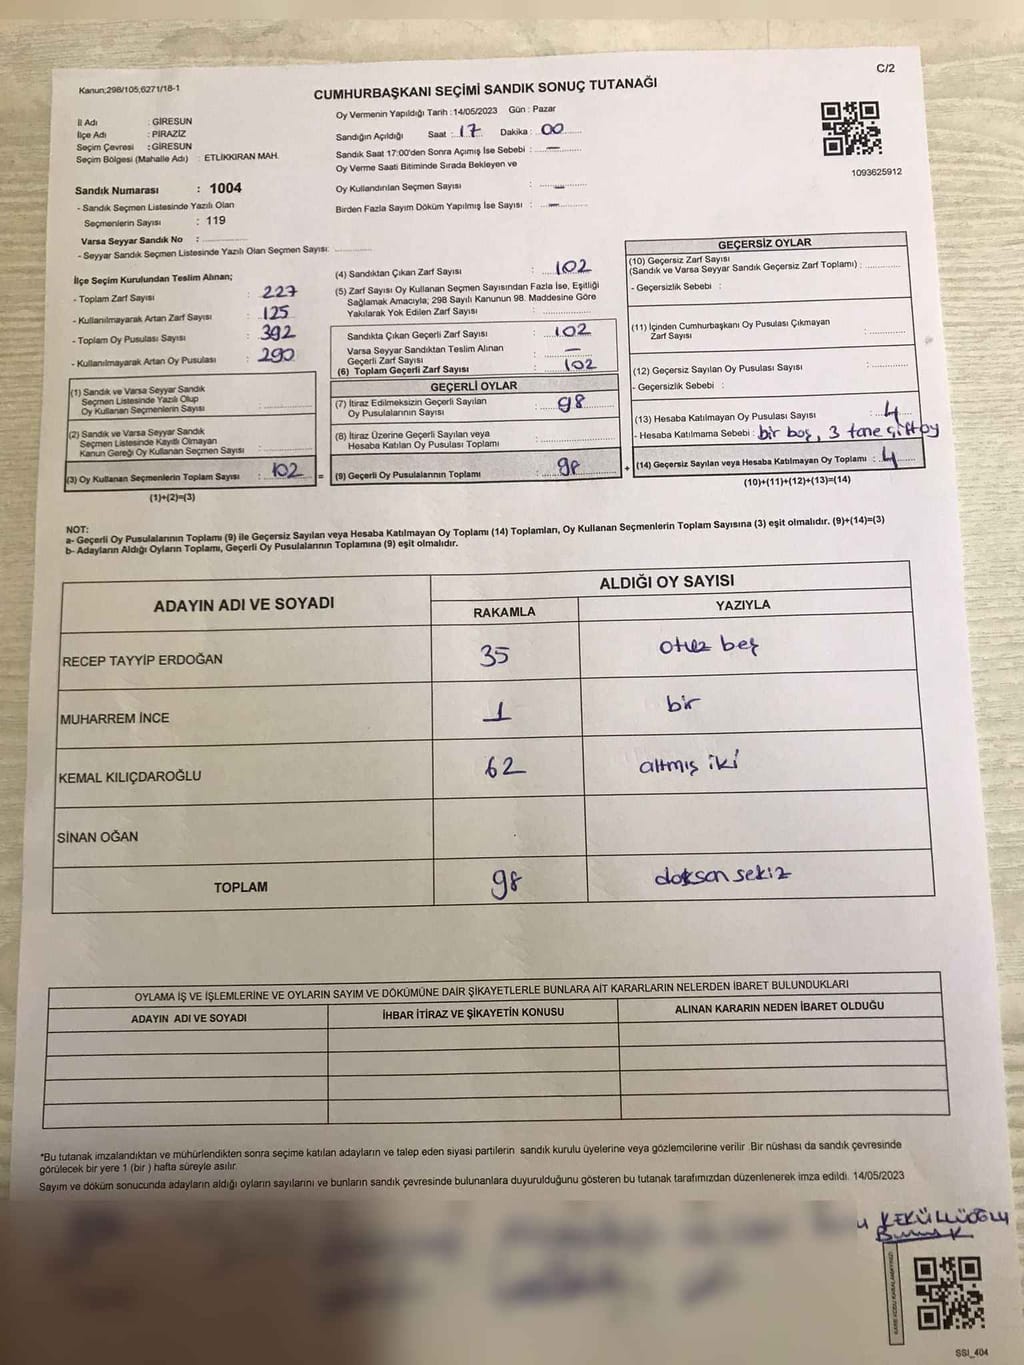 Kanun;298/105,6271/18-1
C/2
CUMHURBAŞKANI SEÇİMİ SANDIK SONUÇ TUTANAĞI
İl Adı : GİRESUN
İlçe Adı : PİRAZİZ
Seçim Çevresi : GİRESUN
Seçim Bölgesi (Mahalle Adı) : ETLİKKIRAN MAH.
Sandık Numarası : 1004
- Sandık Seçmen Listesinde Yazılı Olan
Seçmenlerin Sayısı : 119
Varsa Seyyar Sandık No :
- Seyyar Sandık Seçmen Listesinde Yazılı Olan Seçmen Sayısı:
Oy Vermenin Yapıldığı Tarih : 14/05/2023 Gün : Pazar
Sandığın Açıldığı Saat : 17 Dakika : 00
Sandık Saat 17:00'den Sonra Açımış İse Sebebi : —
Oy Verme Saati Bitiminde Sırada Bekleyen ve
Oy Kullandırılan Seçmen Sayısı : —
Birden Fazla Sayım Döküm Yapılmış İse Sayısı : —
1093625912
İlçe Seçim Kurulundan Teslim Alınan;
- Toplam Zarf Sayısı : 227
- Kullanılmayarak Artan Zarf Sayısı : 125
- Toplam Oy Pusulası Sayısı : 392
- Kullanılmayarak Artan Oy Pusulası : 290
(1) Sandık ve Varsa Seyyar Sandık
Seçmen Listesinde Yazılı Olup
Oy Kullanan Seçmenlerin Sayısı :
(2) Sandık ve Varsa Seyyar Sandık
Seçmen Listesinde Kayıtlı Olmayan
Kanun Gereği Oy Kullanan Seçmen Sayısı :
(3) Oy Kullanan Seçmenlerin Toplam Sayısı : 102 =
(1)+(2)=(3)
(4) Sandıktan Çıkan Zarf Sayısı : 102
(5) Zarf Sayısı Oy Kullanan Seçmen Sayısından Fazla İse, Eşitliği
Sağlamak Amacıyla; 298 Sayılı Kanunun 98. Maddesine Göre
Yakılarak Yok Edilen Zarf Sayısı :
Sandıkta Çıkan Geçerli Zarf Sayısı : 102
Varsa Seyyar Sandıktan Teslim Alınan
Geçerli Zarf Sayısı : —
(6) Toplam Geçerli Zarf Sayısı : 102
GEÇERLİ OYLAR
(7) İtiraz Edilmeksizin Geçerli Sayılan
Oy Pusulalarının Sayısı : 98
(8) İtiraz Üzerine Geçerli Sayılan veya
Hesaba Katılan Oy Pusulası Toplamı :
(9) Geçerli Oy Pusulalarının Toplamı : 98 +
GEÇERSİZ OYLAR
(10) Geçersiz Zarf Sayısı
(Sandık ve Varsa Seyyar Sandık Geçersiz Zarf Toplamı) :
- Geçersizlik Sebebi :
(11) İçinden Cumhurbaşkanı Oy Pusulası Çıkmayan
Zarf Sayısı :
(12) Geçersiz Sayılan Oy Pusulası Sayısı :
- Geçersizlik Sebebi :
(13) Hesaba Katılmayan Oy Pusulası Sayısı : 4
- Hesaba Katılmama Sebebi : bir boş, 3 tane çift oy
(14) Geçersiz Sayılan veya Hesaba Katılmayan Oy Toplamı : 4
(10)+(11)+(12)+(13)=(14)
NOT:
a- Geçerli Oy Pusulalarının Toplamı (9) ile Geçersiz Sayılan veya Hesaba Katılmayan Oy Toplamı (14) Toplamları, Oy Kullanan Seçmenlerin Toplam Sayısına (3) eşit olmalıdır. (9)+(14)=(3)
b- Adayların Aldığı Oyların Toplamı, Geçerli Oy Pusulalarının Toplamına (9) eşit olmalıdır.
ADAYIN ADI VE SOYADI
ALDIĞI OY SAYISI
RAKAMLA YAZIYLA
RECEP TAYYİP ERDOĞAN 35 otuz beş
MUHARREM İNCE 1 bir
KEMAL KILIÇDAROĞLU 62 altmış iki
SİNAN OĞAN
TOPLAM 98 doksan sekiz
OYLAMA İŞ VE İŞLEMLERİNE VE OYLARIN SAYIM VE DÖKÜMÜNE DAİR ŞİKAYETLERLE BUNLARA AİT KARARLARIN NELERDEN İBARET BULUNDUKLARI
ADAYIN ADI VE SOYADI İHBAR İTİRAZ VE ŞİKAYETİN KONUSU ALINAN KARARIN NEDEN İBARET OLDUĞU
*Bu tutanak imzalandıktan ve mühürlendikten sonra seçime katılan adayların ve talep eden siyasi partilerin sandık kurulu üyelerine veya gözlemcilerine verilir. Bir nüshası da sandık çevresinde
görülecek bir yere 1 (bir ) hafta süreyle asılır.
Sayım ve döküm sonucunda adayların aldığı oyların sayılarını ve bunların sandık çevresinde bulunanlara duyurulduğunu gösteren bu tutanak tarafımızdan düzenlenerek imza edildi. 14/05/2023
KEKÜLLÜOĞLU
KARE KODU KARALAMAYINIZ!
SSI_404